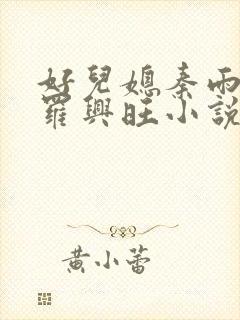 好兒媳秦雨
羅興旺小說
黃小蕾